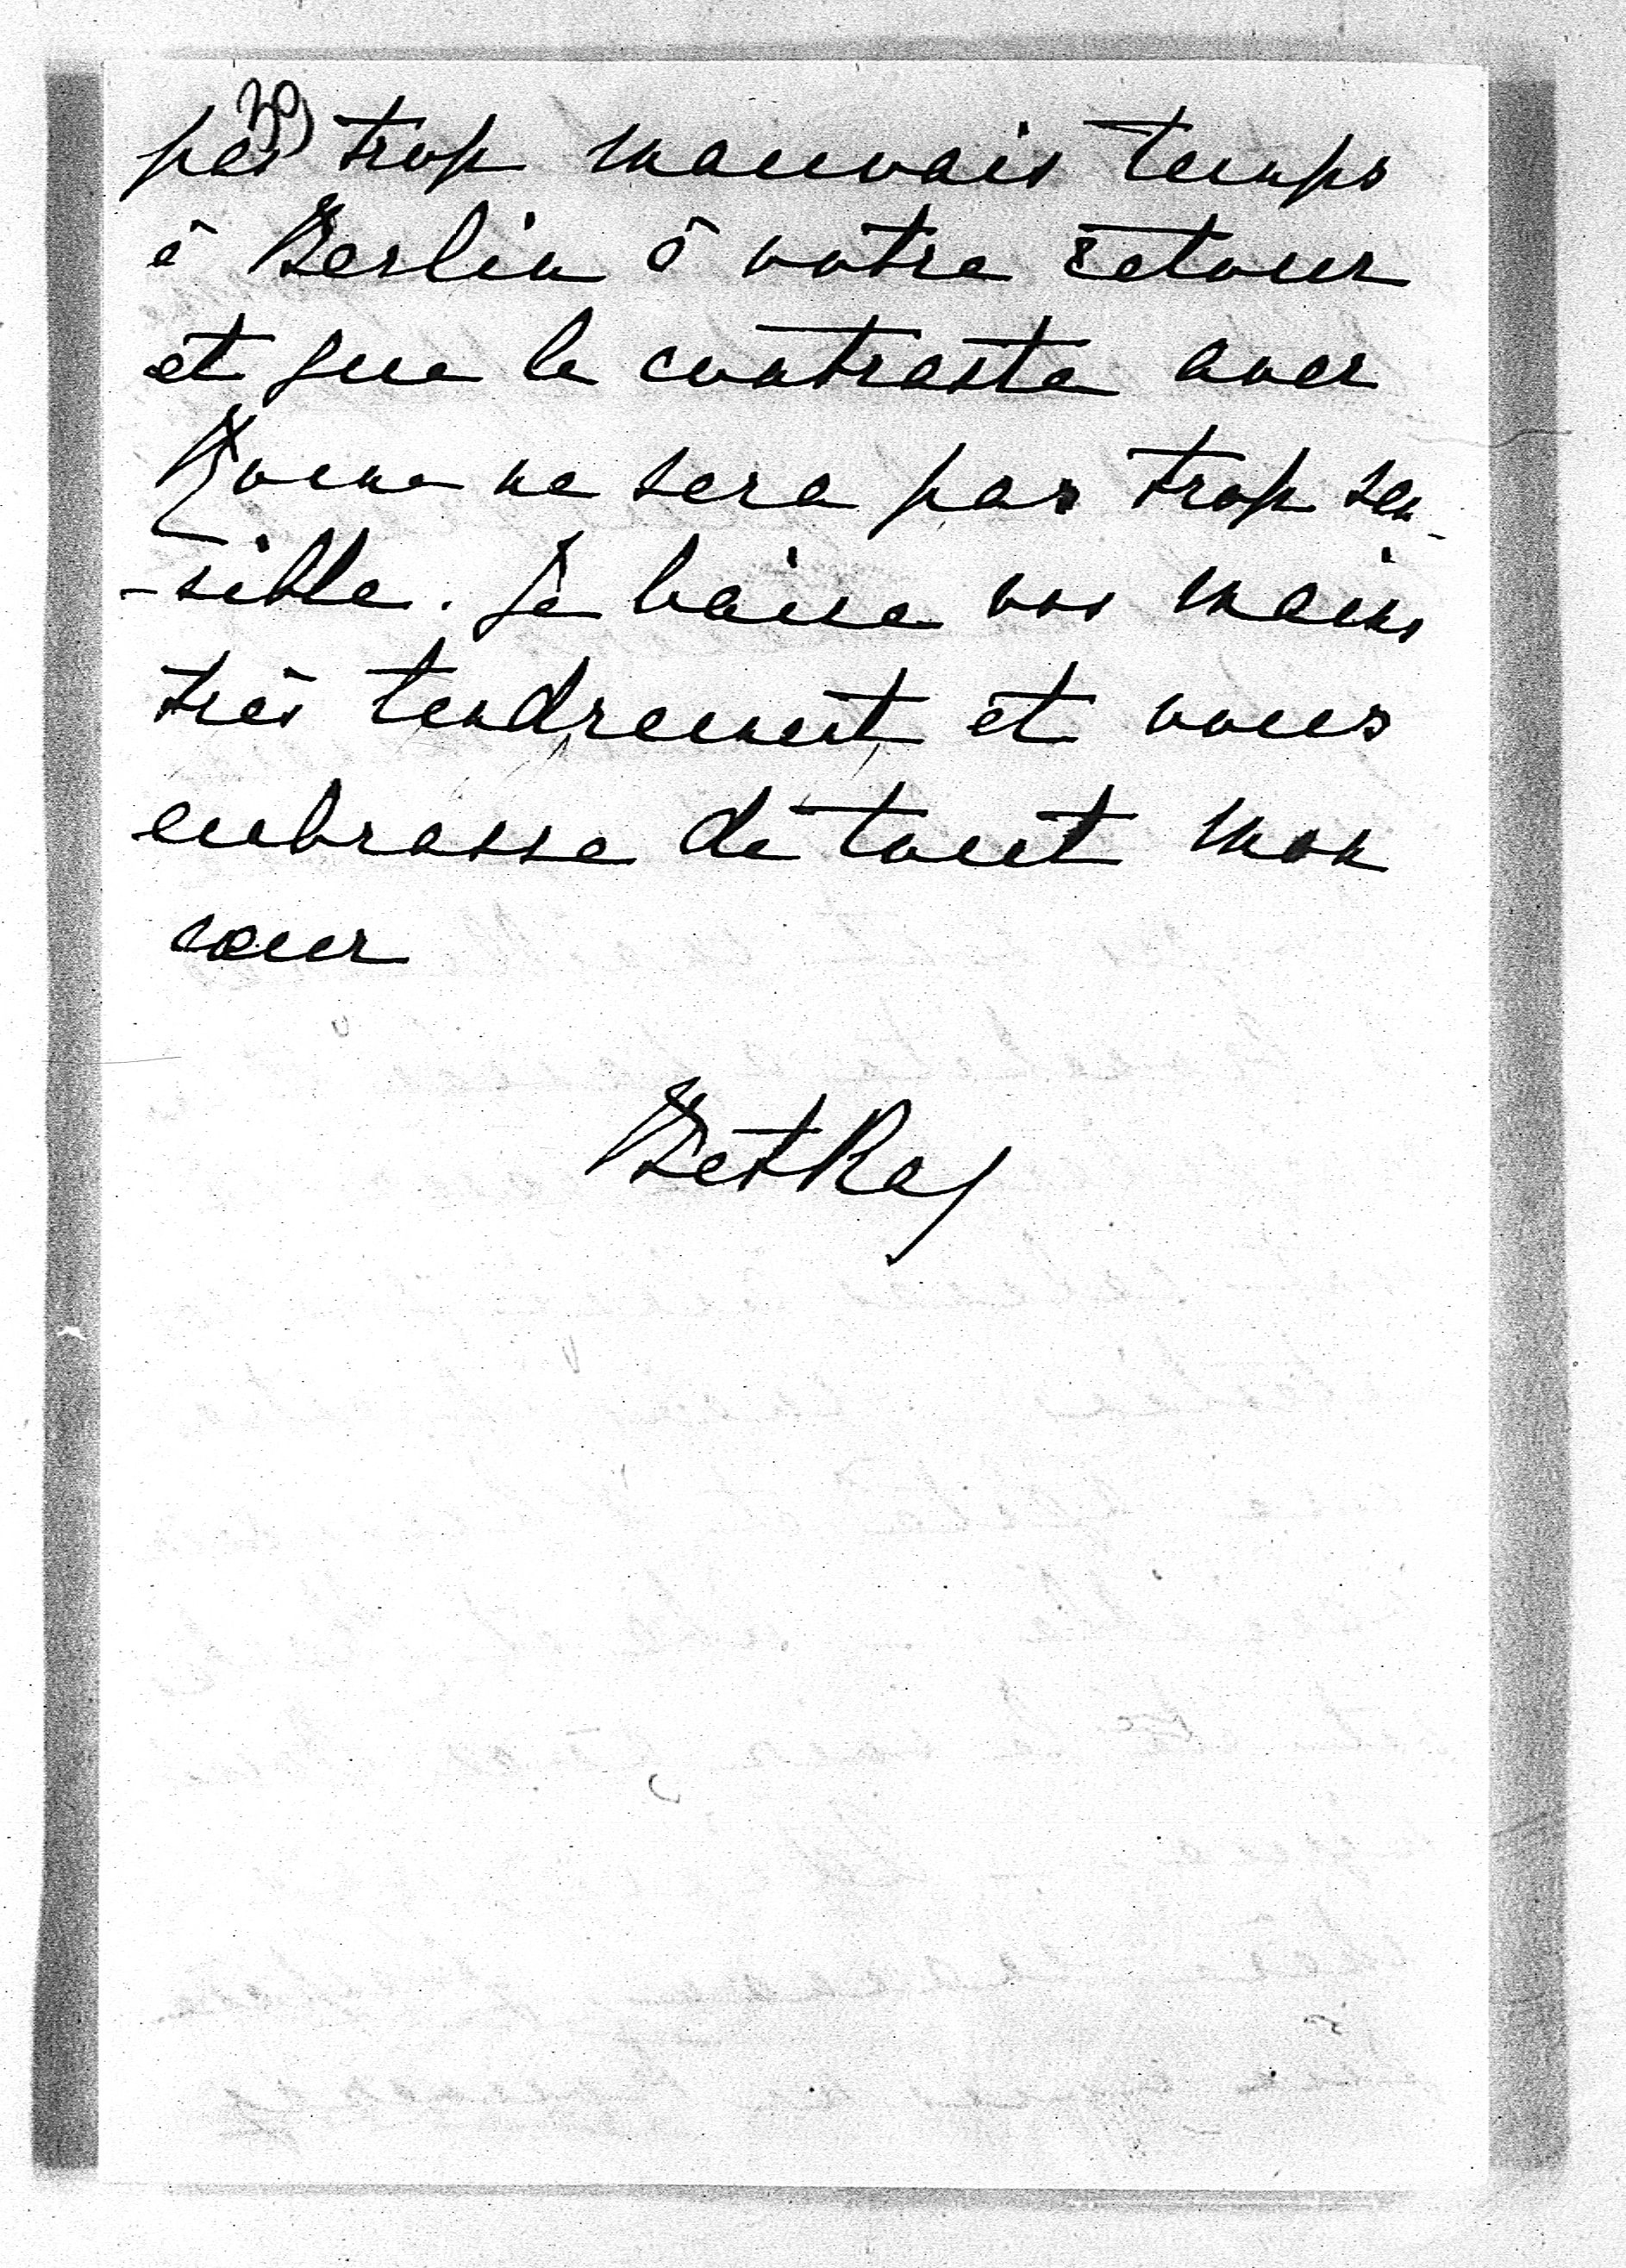 30)
pas trop mauvais temps
à Berlin à votre retour
et que le contraste avec
Rome ne sera pas trop sen-
-sible. Je baise vos mains
très tendrement et vous
embrasse de tout mon
cœur